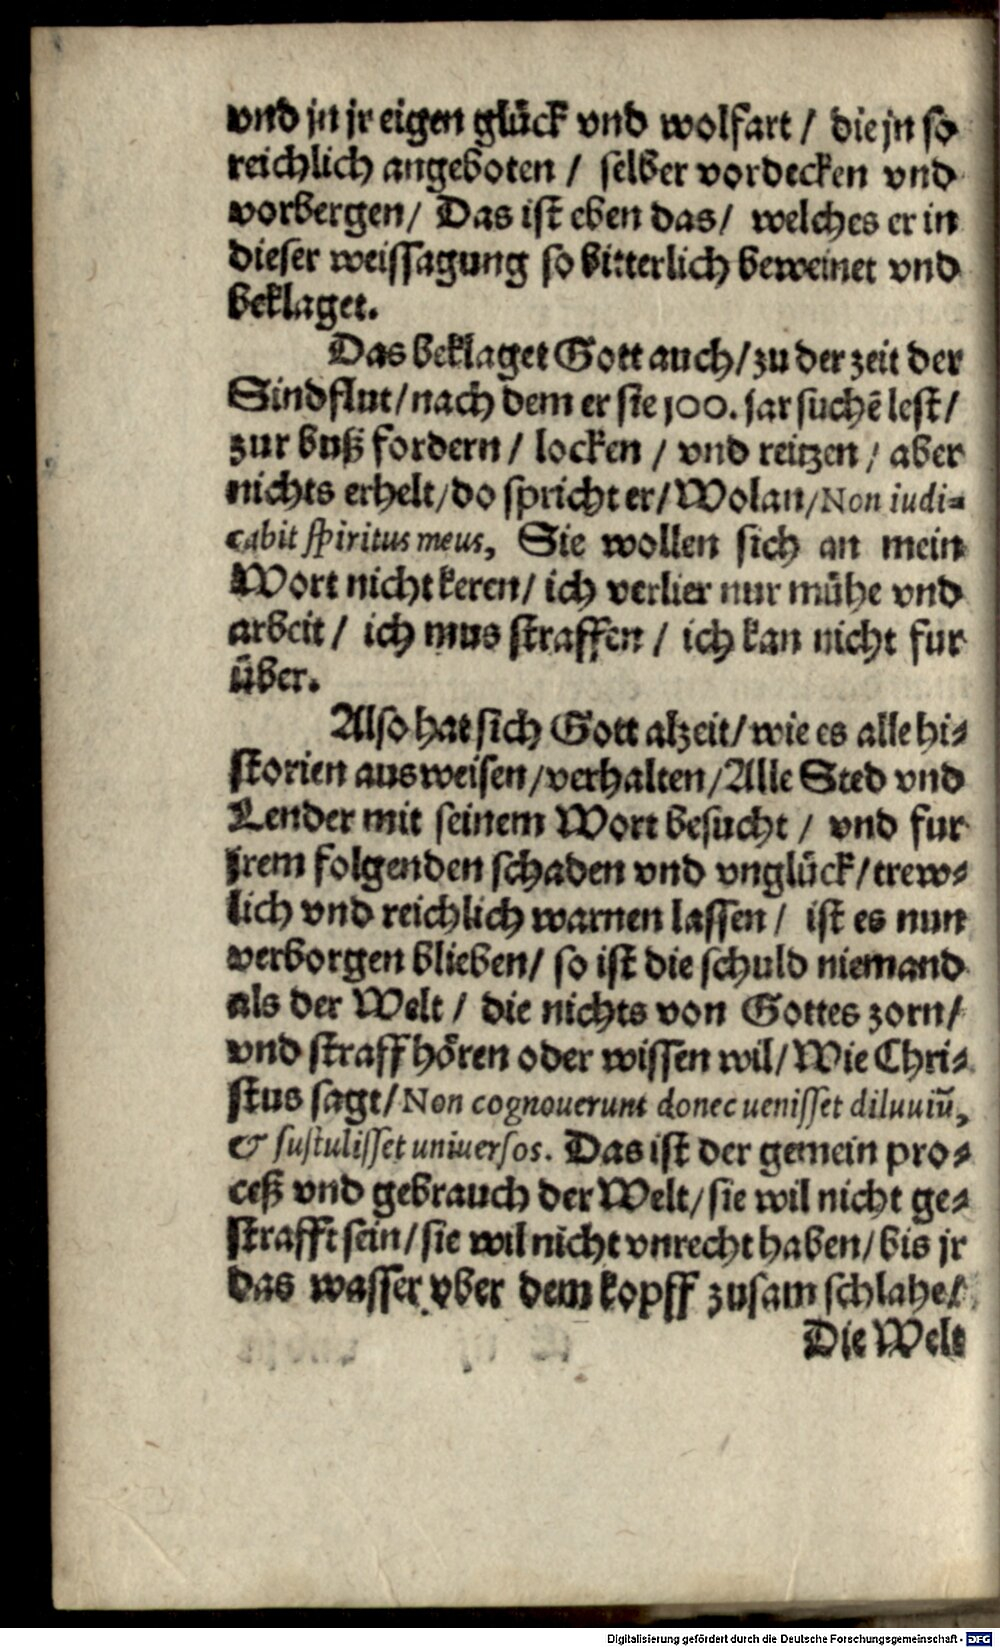 vnd jn jr eigen glück vnd wolfart / die jn so
reichlich angeboten / selber vordecken vnd
vorbergen/ Das ist eben das/ welches er in
dieser weissagung so bitterlich beweinet vnd
beklaget.
Das beklaget Gott auch/ zu der zeit der
Sindflut/ nach dem er sie 100. jar suchē lest/
zur buß fordern / locken / vnd reitzen / aber
nichts erhelt/ do spricht er/ Wolan/ Non iudi-
cabit spiritus meus, Sie wollen sich an mein
Wort nicht keren/ ich verlier nur mühe vnd
arbeit / ich mus straffen / ich kan nicht fur
über.
Also hat sich Gott alzeit/ wie es alle hi-
storien ausweisen/ verhalten/ Alle Sted vnd
Lender mit seinem Wort besucht / vnd fur
jrem folgenden schaden vnd vnglück/ trew-
lich vnd reichlich warnen lassen / ist es nun
verborgen blieben/ so ist die schuld niemand
als der Welt / die nichts von Gottes zorn/
vnd straff hören oder wissen wil/ Wie Chri-
stus sagt/ Non cognouerunt donec uenisset diluuiū,
& sustulisset uniuersos. Das ist der gemein pro-
ceß vnd gebrauch der Welt/ sie wil nicht ge-
strafft sein/ sie wil nicht vnrecht haben/ bis jr
das wasser vber dem kopff zusam schlahe/
Die Welt
Digitalisierung gefördert durch die Deutsche Forschungsgemeinschaft - DFG